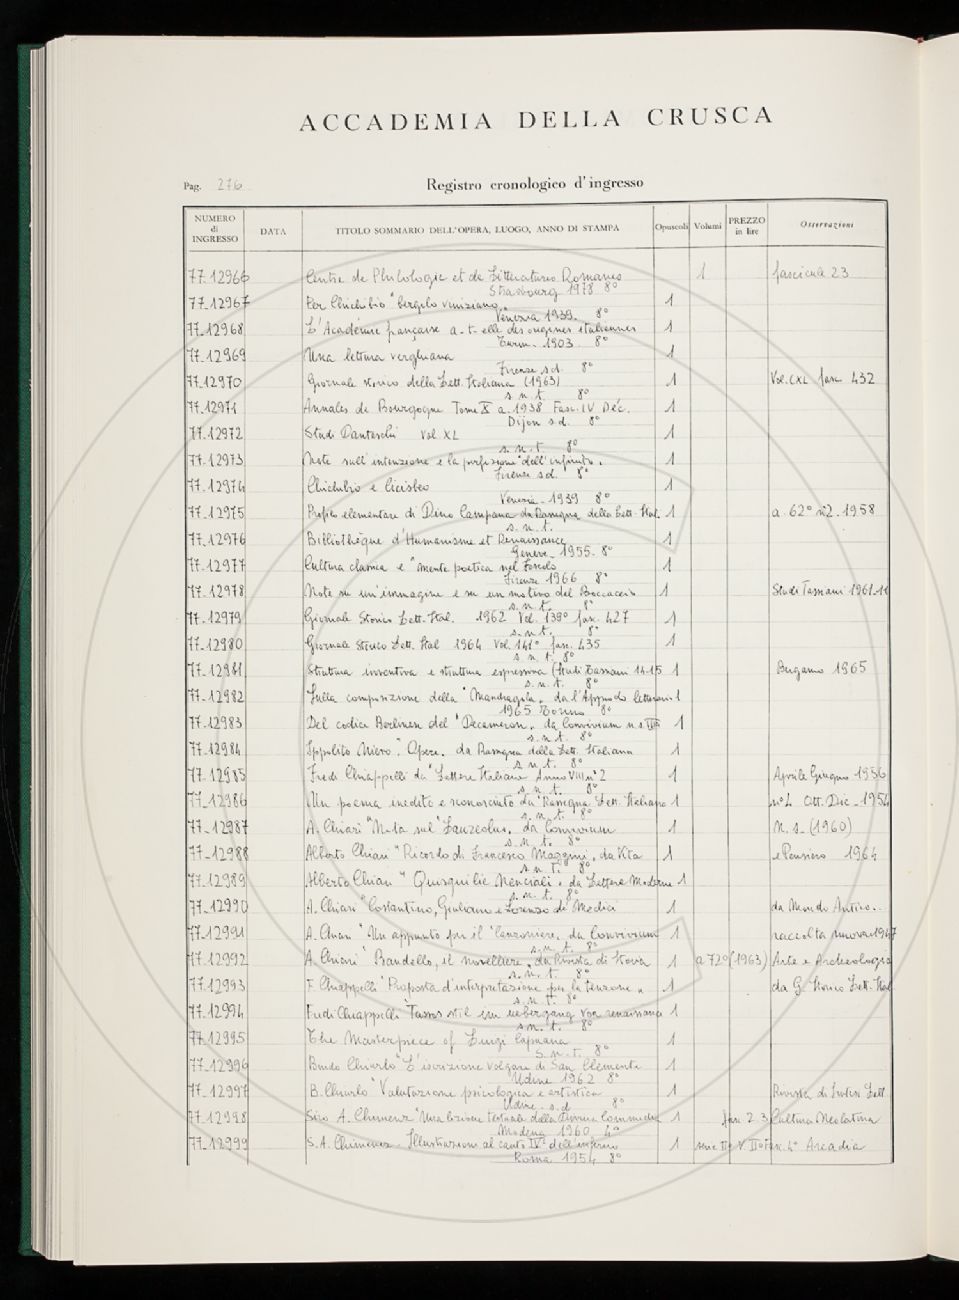 ACCADEMIA DELLA CRUSCA
Pag. 276
Registro cronologico d'ingresso
NUMERO di INGRESSO DATA TITOLO SOMMARIO DELL'OPERA, LUOGO, ANNO DI STAMPA Opuscoli Volumi PREZZO in lire Osservazioni
77-12966 Centre de Philologie et de Littératures Romanes 1 fascicule 23
Strasbourg 1978 8°
77-12967 Per Chichibio "bergolo viniziano" 1
Venezia 1939. 8°
77-12968 L'Académie française a-t-elle des origines italiennes 1
Turin 1903 8°
77-12969 Una lettura verghiana 1
Firenze s.d. 8°
77-12970 Giornale storico della Lett. Italiana (1963) 1 Vol. CXL fasc. 432
s.n.t. 8°
77-12971 Annales de Bourgogne Tome X a. 1938 Fasc. IV Déc. 1
Dijon s.d. 8°
77-12972 Studi Danteschi Vol. XL 1
s.n.t. 8°
77-12973 Note sull'intenzione e la perfezione "dell'infinito" 1
Firenze s.d. 8°
77-12974 Chichibio e Cicisbeo 1
Venezia - 1939 8°
77-12975 Profilo elementare di Dino Campana da Rassegna della Lett. Ital. 1 a. 62° n°2 1958
s.n.t.
77-12976 Bibliothèque d'Humanisme et Renaissance 1
Genève - 1955. 8°
77-12977 Cultura classica e "mente poetica" nel Foscolo 1
Firenze 1966 8°
77-12978 Note su un'immagine e su un motivo del Boccaccio 1 Studi Tassiani 1961-11
s.n.t. 8°
77-12979 Giornale Storico Lett. Ital. 1962 Vol. 139° fasc. 427 1
s.n.t. 8°
77-12980 Giornale Storico Lett. Ital 1964 Vol. 141° fasc. 435 1
s.n.t. 8°
77-12981 Struttura inventiva e struttura espressiva (Studi Tassiani 14-15 1 Bergamo 1965
s.n.t. 8°
77-12982 Sulla composizione della "Mandragola" da l'Approdo letterario 1
1965 Torino 8°
77-12983 Del codice Berlinese del "Decameron" da Convivium n.s. 1
s.n.t. 8°
77-12984 Ippolito Nievo "Opere" da Rassegna della Lett. Italiana 1
s.n.t. 8°
77-12985 Fredi Chiappelli da "Lettere Italiane Anno VIII n°2 1 Aprile Giugno 1956
s.n.t. 8°
77-12986 Un poema inedito e sconosciuto da "Rassegna Lett. Italiana 1 n°4 Ott. Dic. 1954
s.n.t. 8°
77-12987 A. Chiari "Nota sul "Lauzeolus" da Convivium 1 N.s. (1960)
s.n.t. 8°
77-12988 Alberto Chiari "Ricordo di Francesco Maggini" da Vita 1 e Pensiero 1964
s.n.t. 8°
77-12989 Alberto Chiari "Quisquilie Nenciali" da Lettere Moderne 1
s.n.t. 8°
77-12990 A. Chiari "Costantino, Giuliano e Lorenzo de' Medici 1 da Mondo Antico.
77-12991 A. Chiari "Un appunto per il "Canzoniere" da Convivium 1 raccolta nuova 1947
s.n.t. 8°
77-12992 A. Chiari "Bandello, il novelliere" da Rivista di Storia 1 a 72° (1963) Arte e Archeologia
s.n.t. 8°
77-12993 F. Chiappelli "Proposta d'interpretazione per la tenzone" 1 da G. Storico Lett. Ital.
s.n.t. 8°
77-12994 Fredi Chiappelli "Tassos stil im uebergang von renaissance 1
s.n.t. 8°
77-12995 The Masterpiece of Luigi Capuana 1
s.n.t. 8°
77-12996 Bindo Chiurlo "L'iscrizione volgare di San Clemente 1
Udine 1962 8°
77-12997 B. Chiurlo "Valutazione psicologica e artistica 1 Rivista di Sintesi Lett.
Udine s.d 8°
77-12998 Siro A. Chimenz "Una lezione testuale della Divina Commedia 1 fasc. 2.3 Cultura Neolatina
Modena 1960 4°
77-12999 S.A. Chimenz. Illustrazioni al canto IV° dell'inferno 1 serie II° V. II° Fasc. 4° Arcadia
Roma 1954 8°